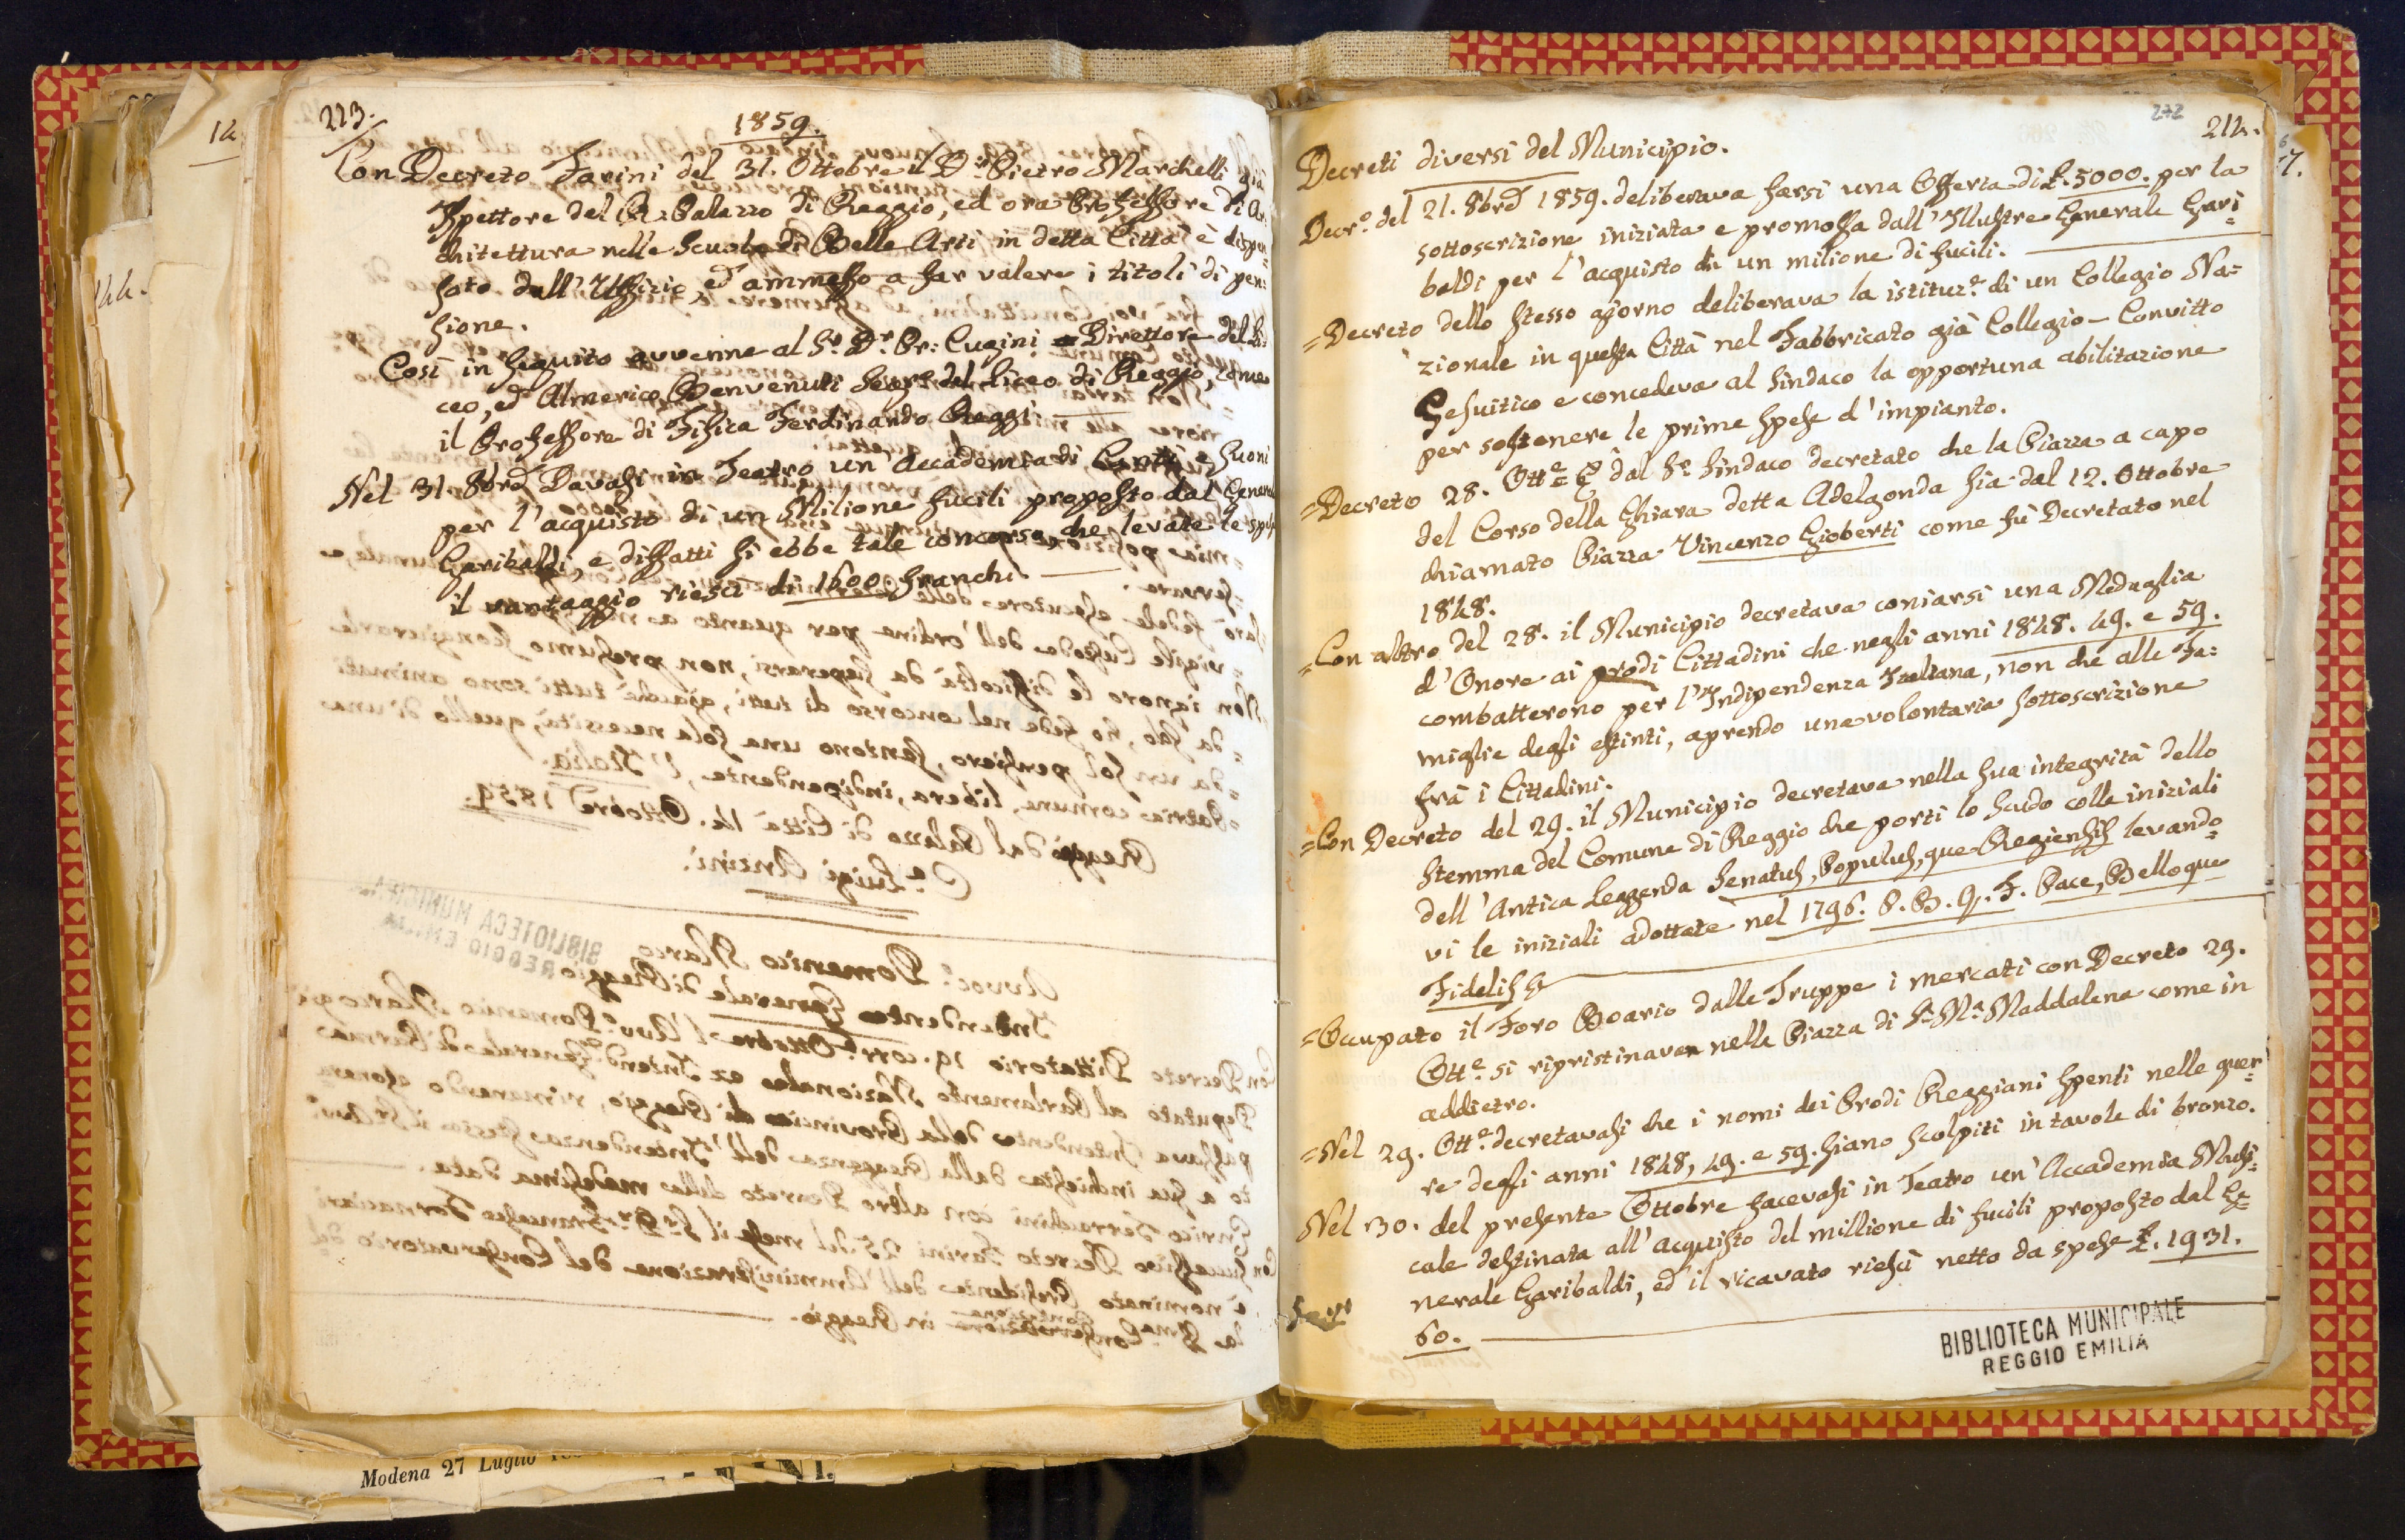 223.
1859.
Con Decreto Farini del 31. Ottobre il Dr. Pietro Marchelli già
Ispettore del R. Palazzo di Reggio, ed ora Professore di Ar
chitettura nelle Scuole di Belle Arti in detta Città è dispen
sato dall'Uffizio ed ammesso a far valere i titoli di pen:
sione.
Così in seguito avvenne al Sr. Dr. Pr: Cugini Direttore del Li
ceo, ed Almerico Benvenuti Segro del Liceo di Reggio, come
il Professore di Fisica Ferdinando Reggi.
Nel 31. 8bre Davasi in Teatro un'Accademia di Canti e Suoni
per l'acquisto di un Milione fucili proposto dal General
Garibaldi, e diffatti si ebbe tale concorso che levate le spese
il vantaggio riescì di 1600 franchi
212
214.
Decreti diversi del Municipio.
Decr.o del 21. 8bre 1859. deliberava farsi una Offerta di £. 5000. per la
sottoscrizione iniziata e promossa dall'Illustre Generale Gari=
baldi per l'acquisto di un milione di fucili.
=Decreto dello stesso giorno deliberava la istituz.e di un Collegio Na=
zionale in questa Città nel Fabbricato già Collegio-Convitto
Gesuitico e concedeva al Sindaco la opportuna abilitazione
per sostenere le prime spese d'impianto.
=Decreto 28. Ott.e è dal Sr. Sindaco decretato che la Piazza a capo
del Corso della Ghiara detta Adelgonda sia dal 12. Ottobre
chiamato Piazza Vincenzo Gioberti come fù Decretato nel
1848.
=Con altro del 28. il Municipio decretava coniarsi una Medaglia
d'Onore ai prodi Cittadini che negli anni 1848. 49. e 59.
combatterono per l'Indipendenza Italiana, non che alle Fa:
miglie degli estinti, aprendo una volontaria sottoscrizione
frà i Cittadini.
=Con Decreto del 29. il Municipio decretava nella sua integrità dello
Stemma del Comune di Reggio che porti lo scudo colle iniziali
dell'Antica Leggenda Senatus, Populus, que Regiensis levando=
vi le iniziali adottate nel 1796. P. B. Q. F. Pace, Belloque
Fidelis
=Occupato il Foro Boario dalle Truppe i mercati con Decreto 29.
Ott.e si ripristinavan nella Piazza di S.a M.a Maddalena come in
addietro.
=Nel 29. Ott.e decretavasi che i nomi dei Prodi Reggiani spenti nelle guer=
re degli anni 1848, 49. e 59. siano scolpiti in tavole di bronzo.
Nel 30. del presente Ottobre facevasi in Teatro un'Accademia Musi=
cale destinata all'acquisto del millione di fucili proposto dal Ge=
nerale Garibaldi, ed il ricavato riescì netto da spese £. 1931.
60.
BIBLIOTECA MUNICIPALE
REGGIO EMILIA
Modena 27 Luglio